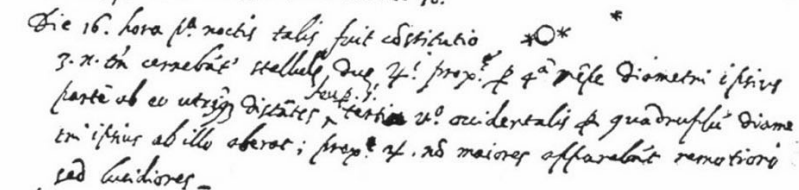 Die 16. hora pª noctis talis fuit cõstitutio *O* *
3. n. tñ cernebãt' stellulę duę ♃ⁱ prox.ę p 4ã diametri ipsius
partẽ ab eo utrinq; distãtes, tertia vº occidentalis p quadruplũ diame
tri ipsius ab illo aberat; prox.ę ♃. nõ maiores apparebãt remotiori
sed lucidiores